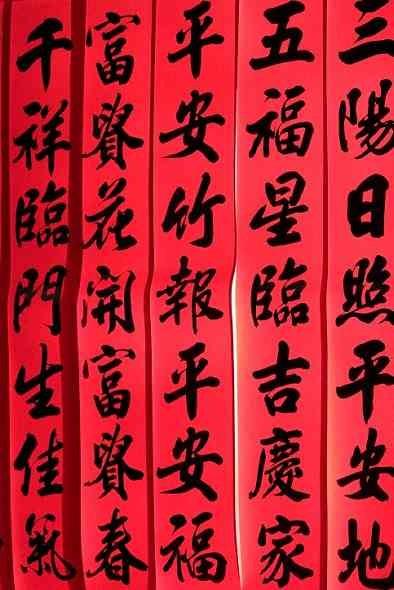 三陽日照平安地
五福星臨吉慶家
平安竹報平安福
富貴花開富貴春
千祥臨門生佳氣